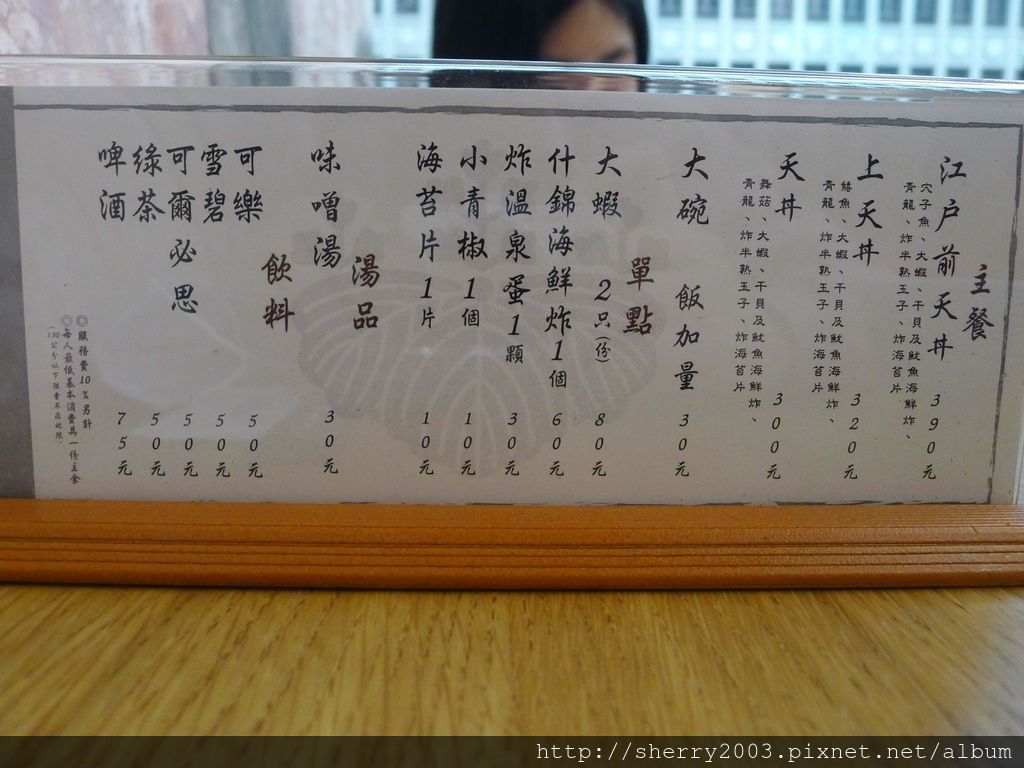 主餐
江戶前天丼 390元
穴子魚、大蝦、干貝及魷魚海鮮炸、
青龍、炸半熟玉子、炸海苔片
上天丼 320元
鱚魚、大蝦、干貝及魷魚海鮮炸、
青龍、炸半熟玉子、炸海苔片
天丼 300元
舞菇、大蝦、干貝及魷魚海鮮炸、
青龍、炸半熟玉子、炸海苔片
大碗 飯加量 30元
單點
大蝦 2只(份) 80元
什錦海鮮炸1個 60元
炸溫泉蛋1顆 30元
小青椒1個 10元
海苔片1片 10元
湯品
味噌湯 30元
飲料
可樂 50元
雪碧 50元
可爾必思 50元
綠茶 50元
啤酒 75元
◎服務費10%另計
◎每人最低基本消費為一份主食
(130公分以下孩童不在此限)
http://sherry2003.pixnet.net/album